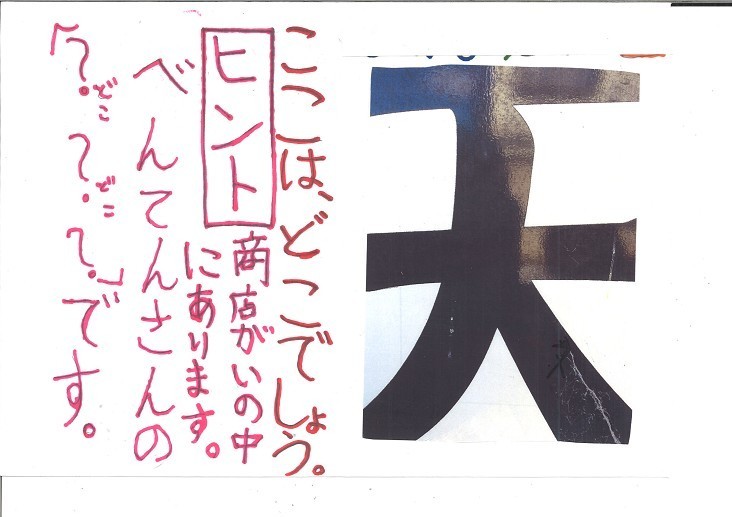 天
ここは、どこでしょう。
ヒント
商店がいの中
にあります。
べんてんさんの
「?どこ?どこ?」です。